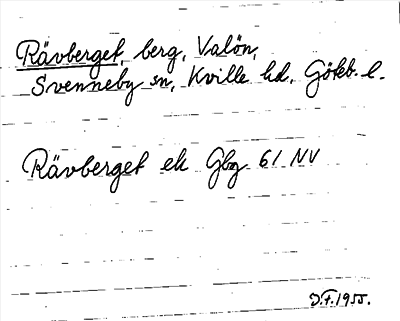 Rävberget, berg, Valön,
Svenneby sn, Kville hd, Göteb. l.
Rävberget ek Gbg 61 NV
J.F. 1955.